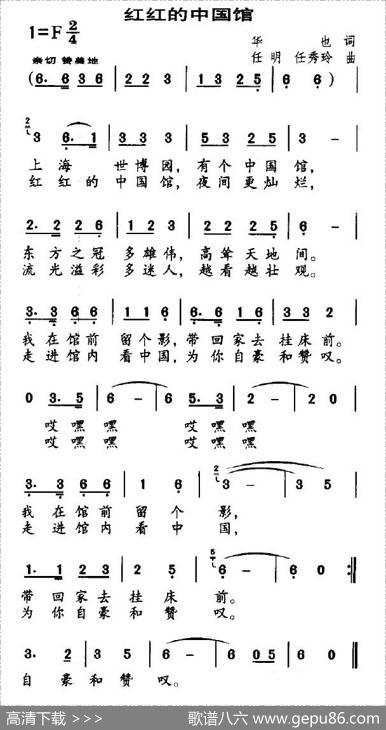 红红的中国馆
1=F 2/4
华也 词
亲切 赞美地
任明 任秀玲 曲
(6. 6 3 6 | 2 2 2 | 1 3 2 5 | 6 6)
2 3 6. 1 | 3 3 3 | 5 3 2 5 | 3 - |
上海 世博园，有个中国馆，
红红的中国馆，夜间更灿烂，
2. 2 2 6 | 1 2 3 | 2 2 2 5 | 6 - |
东方之冠 多雄伟，高耸天地间。
流光溢彩 多迷人，越看越壮观。
3. 3 6 6 | 1 1 6 | 6. 6 1 6 | 3 3 2 |
我在馆前 留个影，带回家去挂床前。
走进馆内 看中国，为你自豪和赞叹。
0 3. 5 | 6 - | 6 0 | 5. 3 | 2 - | 2 0 |
哎嘿嘿 哎嘿嘿
哎嘿嘿 哎嘿嘿
3. 3 6 6 | 1 6 | 2 3 - | 3 5 |
我在馆前留个影，
走进馆内看中国，
1. 1 2 3 | 2 5 | 5 6 - | 6 0 :||
带回家去挂床前。
为你自豪和赞叹。
3. 2 | 2 5 | 6 - | 6 05 | 6 0 ||
自豪和赞叹。
高清下载 >>>
歌谱八六 www.gepu86.com